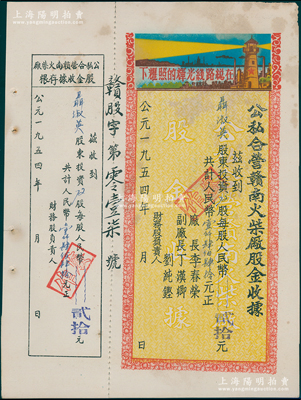 上海陽明拍賣
下耀照的輝光線路總在
公私合營贛南火柴廠股金收據
茲收到
聶淑英 股東投資 股每股人民幣 貳拾元
共計人民幣 元正
廠長李春榮
副廠長丁漢卿
財務股負責人 劉純鑑
公元一九五四年 月 日
股金收據
贛股字第零壹柒號
公私合營贛南火柴廠
股金收據存根
茲收到
聶淑英 股東投資 股每股人民幣 貳拾元
共計人民幣 元正
財務股負責人
公元一九五四年 月 日
上海陽明拍賣
www.shymbp.com